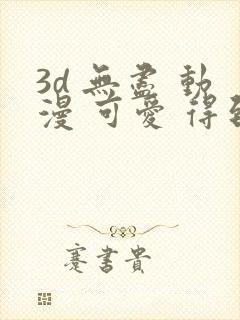 3d 無盡 動
漫 可愛 得
蹇書貴